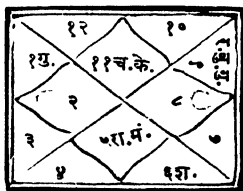 १२ १०
१गु. ११च.के.
२ ८
३ ५रा.मं. ७
४ ६श.